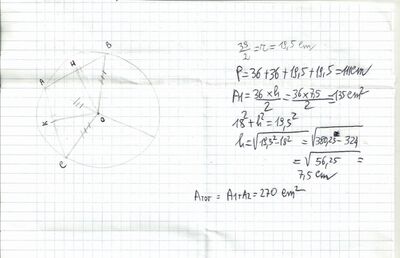 B
H
A
O
K
C
39/2 = r = 19,5 cm
P = 36 + 36 + 19,5 + 19,5 = 111 cm
A1 = 36 × h / 2 = 36 × 7,5 / 2 = 135 cm²
18² + h² = 19,5²
h = √19,5² - 18² = √380,25 - 324
= √56,25 =
7,5 cm
ATOT = A1 + A2 = 270 cm²